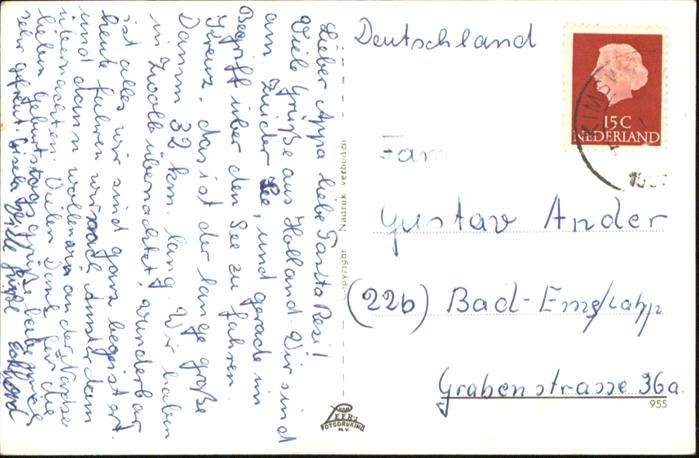 Lieber Appa liebe Tante Resi!
Viele Grüße aus Holland. Wir sind
am Zuider See, und gerade im
Begriff über den See zu fahren.
Kreuz, das ist der lange große
Damm 32 km. lang. Wir haben
in Zwolle übernachtet, wunderbar
ist alles wir sind ganz begeistert.
heute fahren wir nach Amsterdam
und dann wollen wir an der
übernachten. Vielen Dank für die
lieben Geburtstagsgrüße, habe mich
sehr gefreut. Gisela
Copyright Nadruk verboden
Deutschland
15C
NEDERLAND
Fam
Gustav Ander
(22b) Bad-Ems/Lahn
Grabenstrasse 36a.
955
VAN
LEER'S
FOTODRUKIND.
N.V.